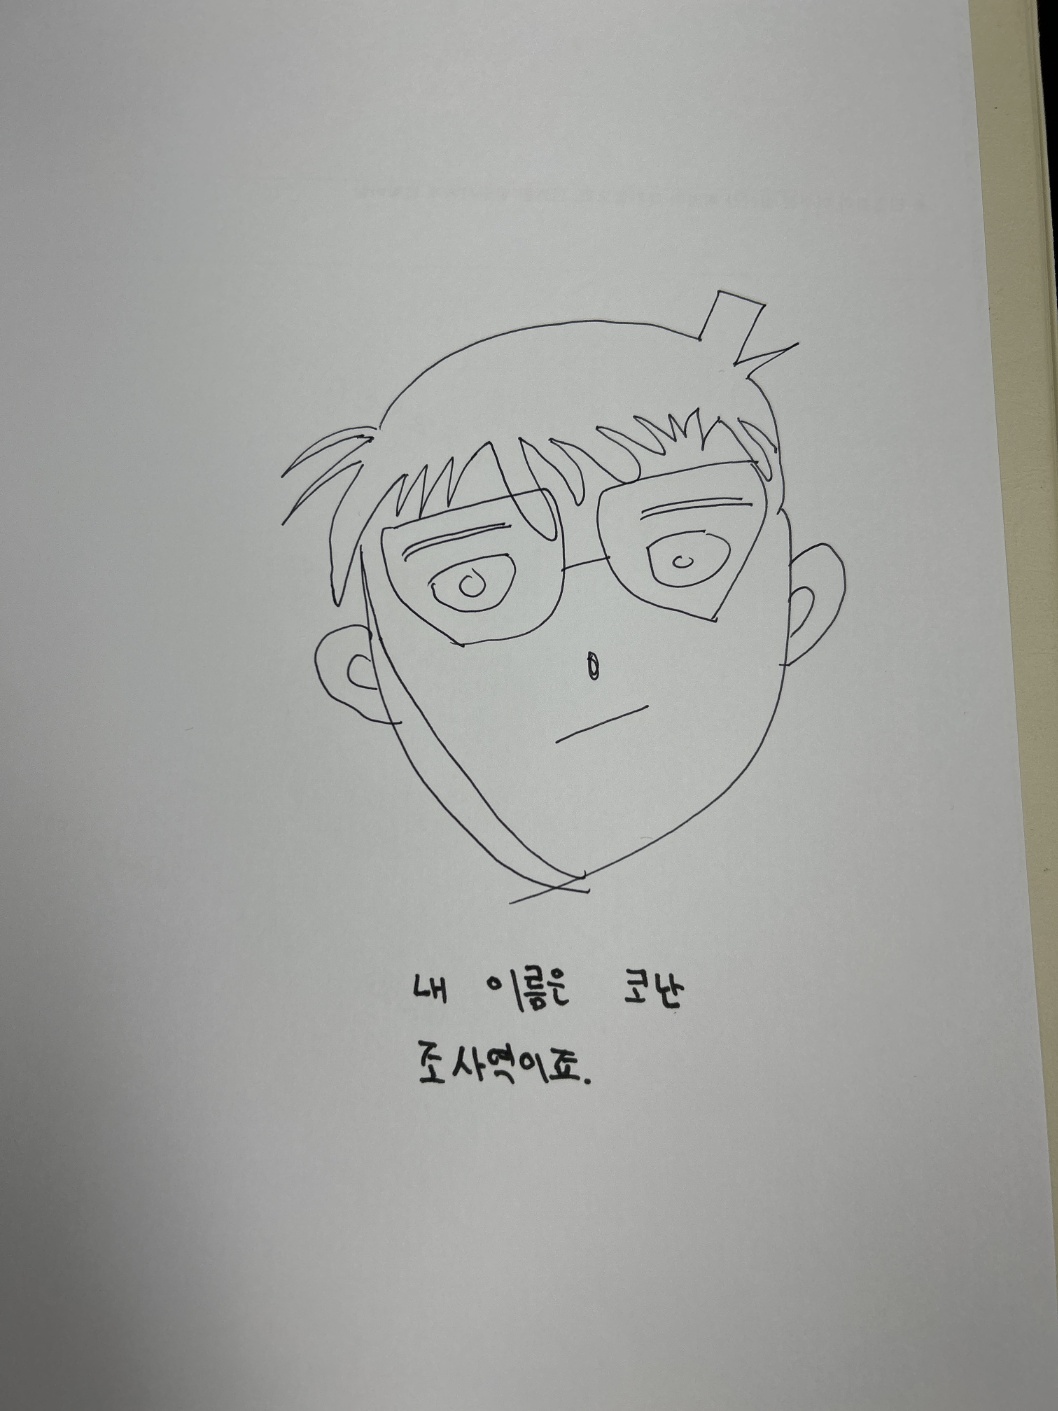 내 이름은 코난
조사역이죠.